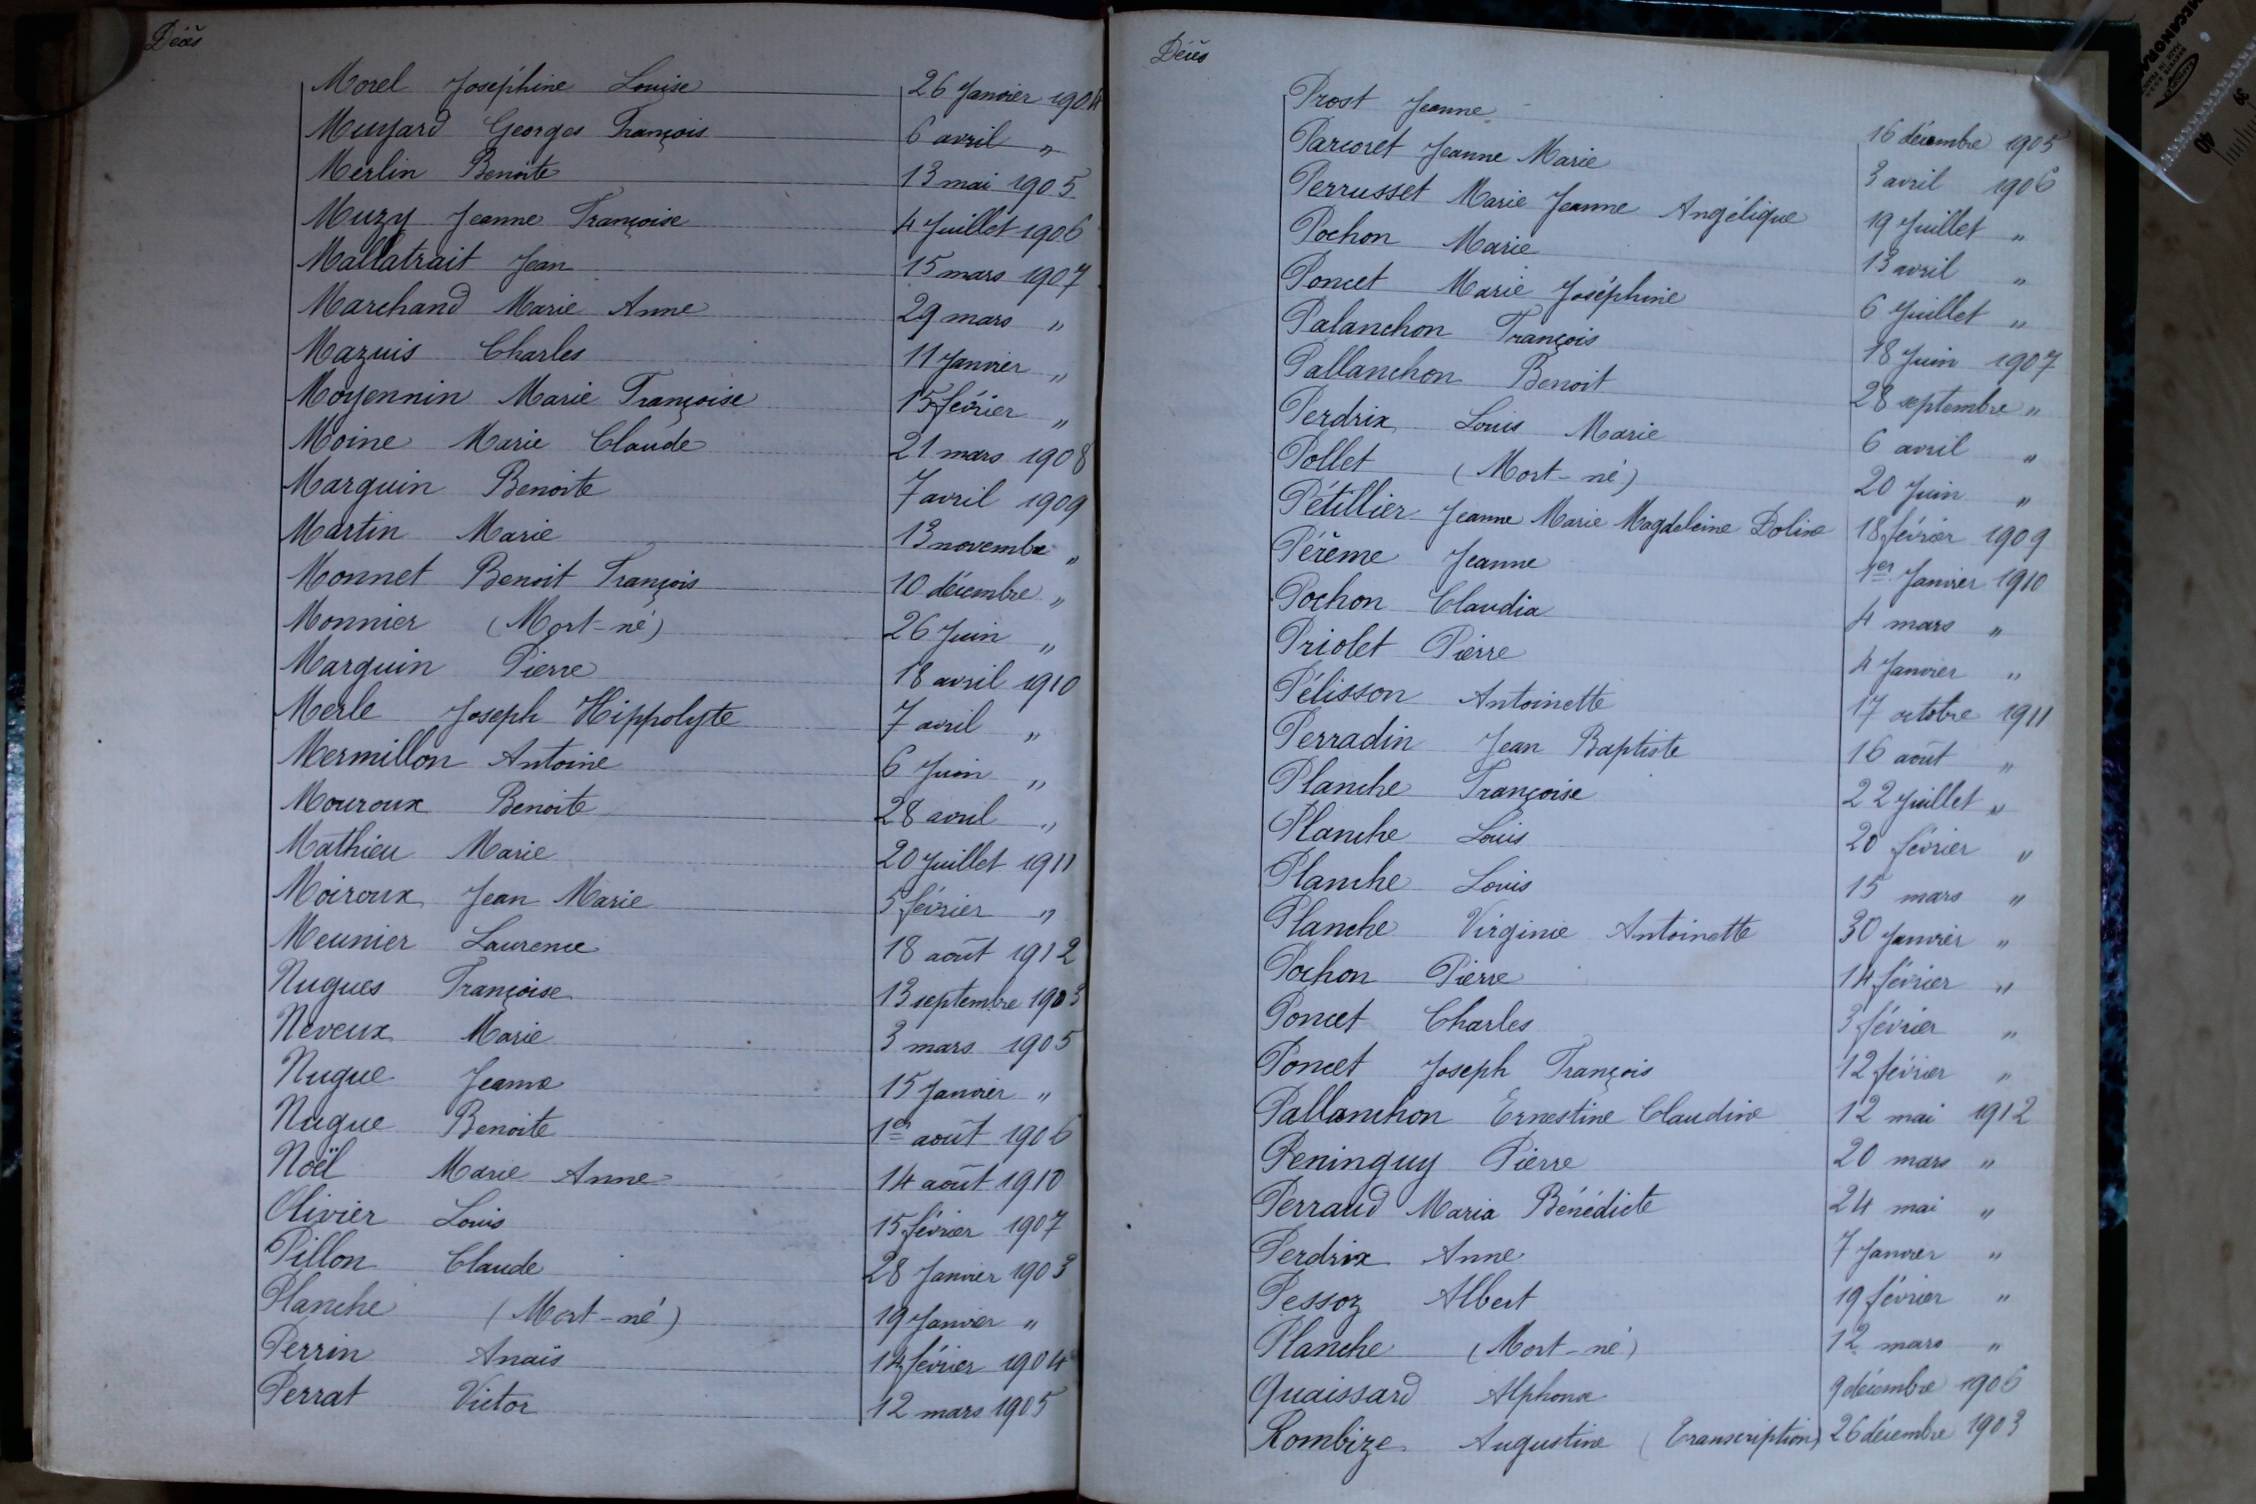 Décès
Morel Joséphine Louise 26 Janvier 1904
Muyard Georges François 6 avril "
Merlin Benoite 13 mai 1905
Muzy Jeanne Françoise 4 Juillet 1906
Mallatrait Jean 15 mars 1907
Marchand Marie Anne 29 mars "
Mazuis Charles 11 Janvier "
Moyennin Marie Françoise 15 février "
Moine Marie Claude 21 mars 1908
Marguin Benoite 7 avril 1909
Martin Marie 13 novembre "
Monnet Benoit François 10 décembre "
Monnier (Mort-né) 26 Juin "
Marguin Pierre 18 avril 1910
Merle Joseph Hippolyte 7 avril "
Mermillon Antoine 6 Juin "
Mouroux Benoite 28 avril "
Mathieu Marie 20 Juillet 1911
Moiroux Jean Marie 5 février "
Meunier Laurence 18 août 1912
Nugues Françoise 13 septembre 1903
Neveux Marie 3 mars 1905
Nugue Jeanne 15 Janvier "
Nugue Benoite 1er août 1906
Noël Marie Anne 14 août 1910
Olivier Louis 15 février 1907
Pillon Claude 28 Janvier 1903
Planche (Mort-né) 19 Janvier "
Perrin Anais 14 février 1904
Perrat Victor 12 mars 1905
Décès
Prost Jeanne 16 décembre 1905
Parcoret Jeanne Marie 3 avril 1906
Perrusset Marie Jeanne Angélique 19 Juillet "
Pochon Marie 13 avril "
Poncet Marie Joséphine 6 Juillet "
Palanchon François 18 Juin 1907
Pallanchon Benoit 28 septembre "
Perdrix Louis Marie 6 avril "
Pollet (Mort-né) 20 Juin "
Pétillier Jeanne Marie Magdeleine Doline 18 février 1909
Pérême Jeanne 1er Janvier 1910
Pochon Claudia 4 mars "
Priolet Pierre 4 Janvier "
Pélisson Antoinette 17 octobre 1911
Perradin Jean Baptiste 16 août "
Planche Françoise 22 Juillet "
Planche Louis 20 février "
Planche Louis 15 mars "
Planche Virginie Antoinette 30 Janvier "
Pochon Pierre 14 février "
Poncet Charles 3 février "
Poncet Joseph François 12 février "
Pallanchon Ernestine Claudine 12 mai 1912
Peninguy Pierre 20 mars "
Perraud Maria Bénédicte 24 mai "
Perdrix Anne 7 Janvier "
Pessoz Albert 19 février "
Planche (Mort-né) 12 mars "
Quaissard Alphonse 9 décembre 1906
Rombize Augustine (Transcription) 26 décembre 1903